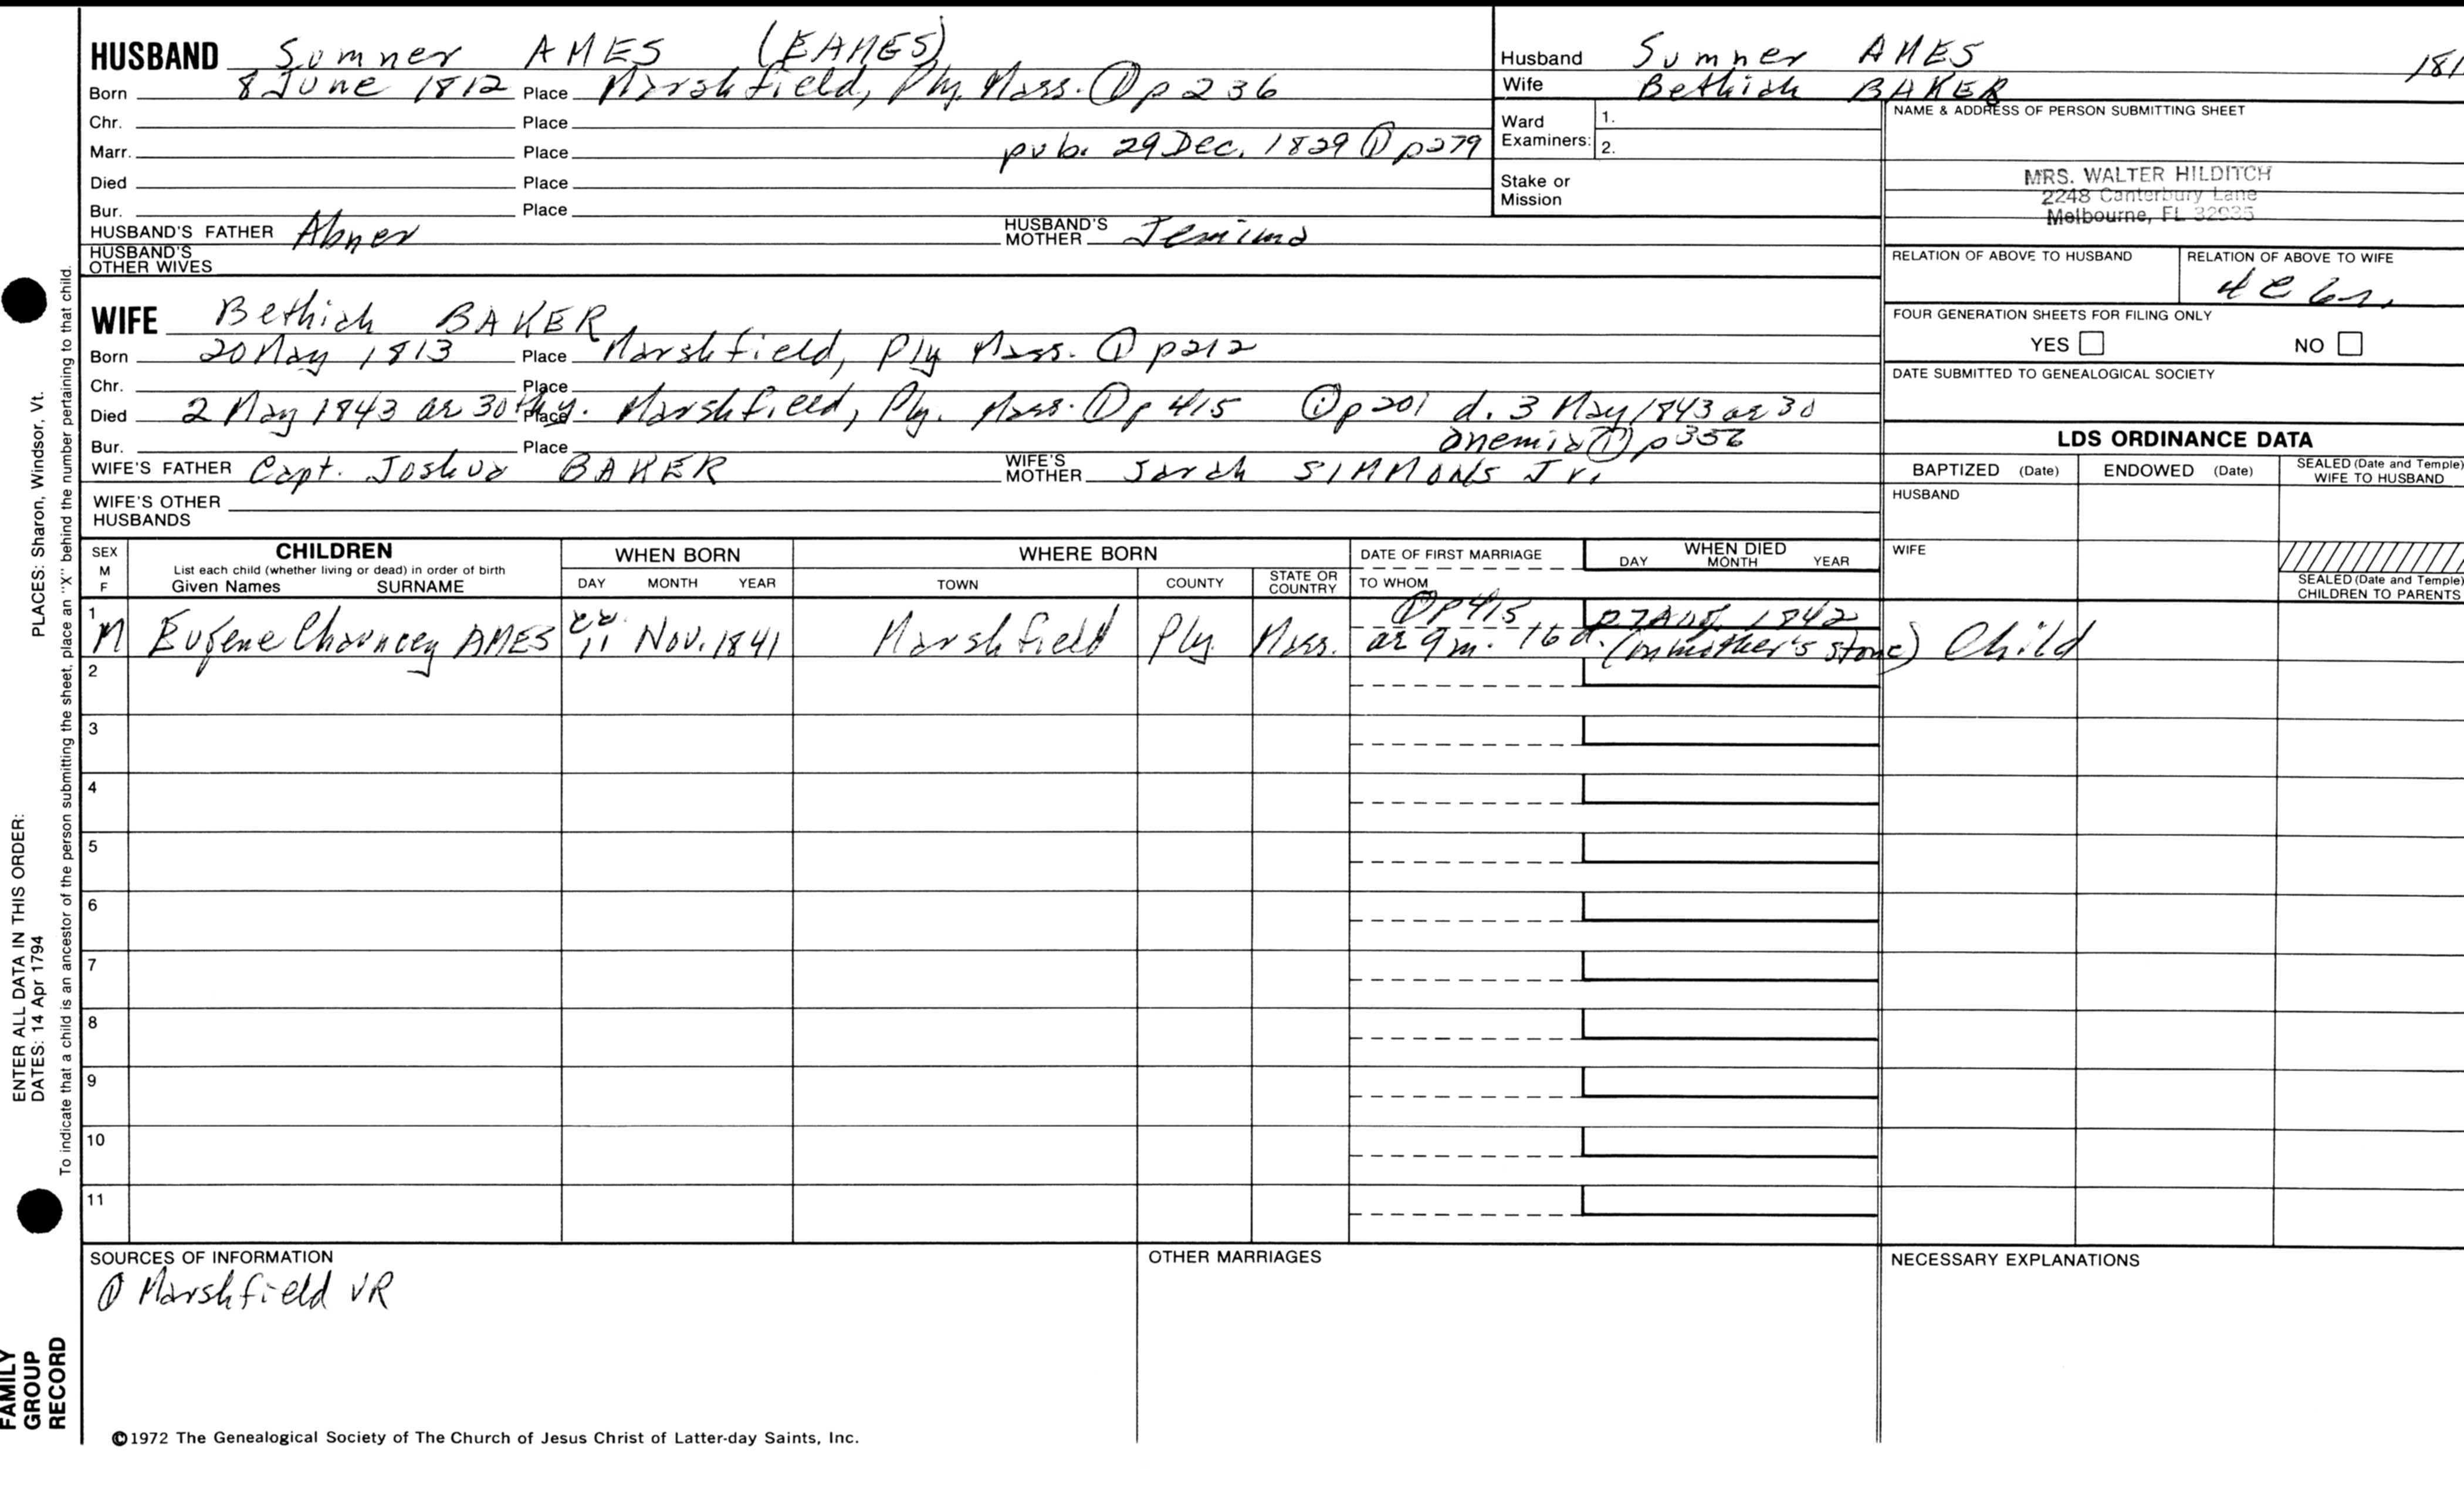 HUSBAND Sumner AMES (EAMES)
Born 8 June 1812 Place Marshfield, Ply. Mass. ① p 236
Chr. Place
Marr. Place pub. 29 Dec. 1829 ① p279
Died Place
Bur. Place
HUSBAND'S FATHER Abner HUSBAND'S MOTHER Jemima
HUSBAND'S OTHER WIVES
Husband Sumner AMES 181
Wife Bethiah BAKER
Ward Examiners: 1.
2.
Stake or Mission
NAME & ADDRESS OF PERSON SUBMITTING SHEET
MRS. WALTER HILDITCH
2248 Canterbury Lane
Melbourne, FL 32935
RELATION OF ABOVE TO HUSBAND
RELATION OF ABOVE TO WIFE
FOUR GENERATION SHEETS FOR FILING ONLY
YES NO
DATE SUBMITTED TO GENEALOGICAL SOCIETY
WIFE Bethiah BAKER
Born 20 May 1813 Place Marshfield, Ply Mass. ① p212
Chr. Place
Died 2 May 1843 ae 30 Place Marshfield, Ply. Mass. ① p 415 ① p201 d. 3 May 1843 ae 30
anemia ① p356
Bur. Place
WIFE'S FATHER Capt. Joshua BAKER WIFE'S MOTHER Sarah SIMMONS Jr.
WIFE'S OTHER HUSBANDS
LDS ORDINANCE DATA
BAPTIZED (Date) ENDOWED (Date) SEALED (Date and Temple) WIFE TO HUSBAND
HUSBAND
WIFE
SEALED (Date and Temple) CHILDREN TO PARENTS
SEX M F
CHILDREN
List each child (whether living or dead) in order of birth
Given Names SURNAME
WHEN BORN
DAY MONTH YEAR
WHERE BORN
TOWN COUNTY STATE OR COUNTRY
DATE OF FIRST MARRIAGE
TO WHOM
WHEN DIED
DAY MONTH YEAR
① p415 27 Aug. 1842
1 M Eugene Chauncey AMES 11 Nov. 1841 Marshfield Ply. Mass. ae 9 m. 16 d. (on mother's stone) Child
2
3
4
5
6
7
8
9
10
11
SOURCES OF INFORMATION
① Marshfield VR
OTHER MARRIAGES
NECESSARY EXPLANATIONS
©1972 The Genealogical Society of The Church of Jesus Christ of Latter-day Saints, Inc.
FAMILY
GROUP
RECORD
ENTER ALL DATA IN THIS ORDER:
DATES: 14 Apr 1794 PLACES: Sharon, Windsor, Vt.
To indicate that a child is an ancestor of the person submitting the sheet, place an "X" behind the number pertaining to that child.